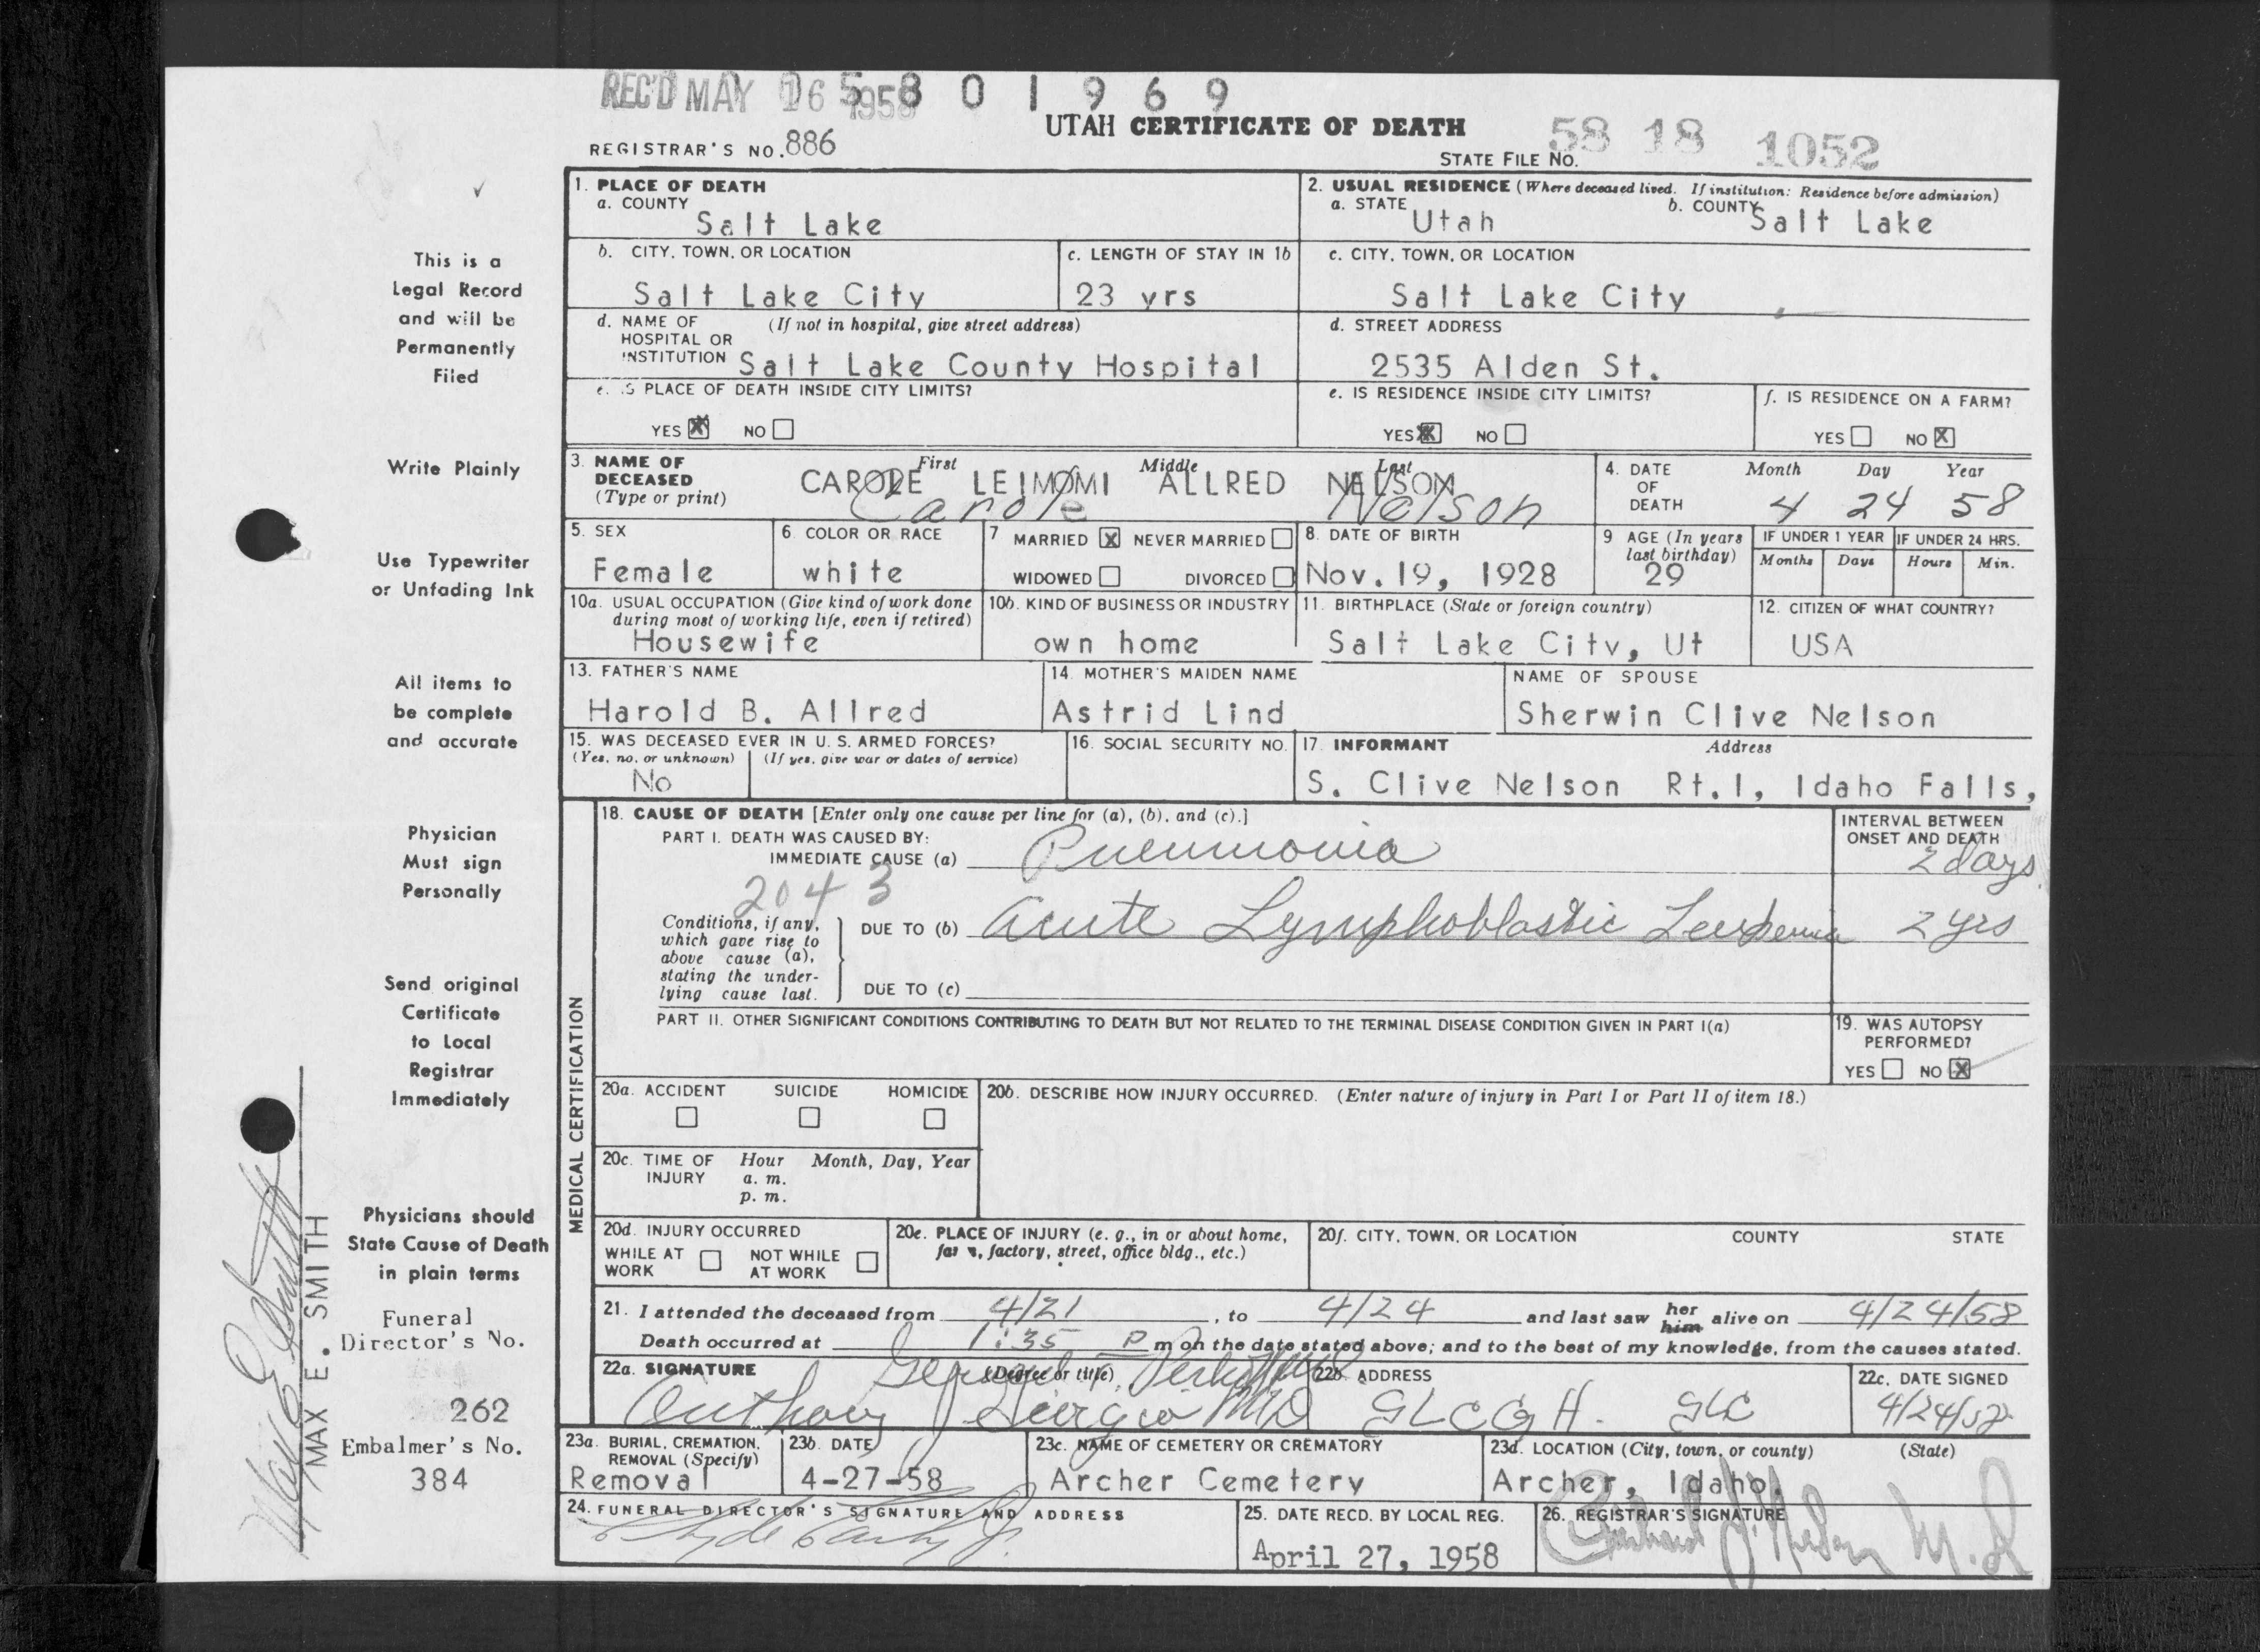 REC'D MAY 16 1958
58 0 1 9 6 9
UTAH CERTIFICATE OF DEATH
REGISTRAR'S NO. 886
STATE FILE NO. 58 18 1052
1. PLACE OF DEATH
a. COUNTY
Salt Lake
2. USUAL RESIDENCE (Where deceased lived. If institution: Residence before admission)
a. STATE Utah b. COUNTY Salt Lake
b. CITY, TOWN, OR LOCATION
Salt Lake City
c. LENGTH OF STAY IN 1b
23 yrs
c. CITY, TOWN, OR LOCATION
Salt Lake City
d. NAME OF (If not in hospital, give street address)
HOSPITAL OR
INSTITUTION Salt Lake County Hospital
d. STREET ADDRESS
2535 Alden St.
e. IS PLACE OF DEATH INSIDE CITY LIMITS?
YES X NO
e. IS RESIDENCE INSIDE CITY LIMITS?
YES X NO
f. IS RESIDENCE ON A FARM?
YES NO X
3. NAME OF
DECEASED
(Type or print)
First Middle Last
CAROLE LEIMOMI ALLRED NELSON
Carole Nelson
4. DATE
OF
DEATH
Month Day Year
4 24 58
5. SEX
Female
6. COLOR OR RACE
white
7 MARRIED X NEVER MARRIED
WIDOWED DIVORCED
8. DATE OF BIRTH
Nov. 19, 1928
9 AGE (In years
last birthday)
29
IF UNDER 1 YEAR
Months Days
IF UNDER 24 HRS.
Hours Min.
10a. USUAL OCCUPATION (Give kind of work done
during most of working life, even if retired)
Housewife
10b. KIND OF BUSINESS OR INDUSTRY
own home
11. BIRTHPLACE (State or foreign country)
Salt Lake City, Ut
12. CITIZEN OF WHAT COUNTRY?
USA
13. FATHER'S NAME
Harold B. Allred
14. MOTHER'S MAIDEN NAME
Astrid Lind
NAME OF SPOUSE
Sherwin Clive Nelson
15. WAS DECEASED EVER IN U. S. ARMED FORCES?
(Yes, no, or unknown) (If yes, give war or dates of service)
No
16. SOCIAL SECURITY NO.
17. INFORMANT Address
S. Clive Nelson Rt.1, Idaho Falls,
MEDICAL CERTIFICATION
18. CAUSE OF DEATH [Enter only one cause per line for (a), (b), and (c).]
PART I. DEATH WAS CAUSED BY:
IMMEDIATE CAUSE (a) Pneumonia
INTERVAL BETWEEN
ONSET AND DEATH
2 days
204 3
Conditions, if any,
which gave rise to
above cause (a),
stating the under-
lying cause last.
DUE TO (b) Acute Lymphoblastic Leukemia 2 yrs
DUE TO (c)
PART II. OTHER SIGNIFICANT CONDITIONS CONTRIBUTING TO DEATH BUT NOT RELATED TO THE TERMINAL DISEASE CONDITION GIVEN IN PART I(a)
19. WAS AUTOPSY
PERFORMED?
YES NO X
20a. ACCIDENT SUICIDE HOMICIDE
20b. DESCRIBE HOW INJURY OCCURRED. (Enter nature of injury in Part I or Part II of item 18.)
20c. TIME OF Hour Month, Day, Year
INJURY a. m.
p. m.
20d. INJURY OCCURRED
WHILE AT WORK NOT WHILE AT WORK
20e. PLACE OF INJURY (e. g., in or about home,
farm, factory, street, office bldg., etc.)
20f. CITY, TOWN, OR LOCATION COUNTY STATE
21. I attended the deceased from 4/21, to 4/24 and last saw her him alive on 4/24/58
Death occurred at 1:35 P m on the date stated above; and to the best of my knowledge, from the causes stated.
22a. SIGNATURE (Degree or title)
Anthony J MD
22b. ADDRESS
SLCGH. SLC
22c. DATE SIGNED
4/24/58
23a. BURIAL, CREMATION,
REMOVAL (Specify)
Removal
23b. DATE
4-27-58
23c. NAME OF CEMETERY OR CREMATORY
Archer Cemetery
23d. LOCATION (City, town, or county) (State)
Archer, Idaho.
24. FUNERAL DIRECTOR'S SIGNATURE AND ADDRESS
25. DATE RECD. BY LOCAL REG.
April 27, 1958
26. REGISTRAR'S SIGNATURE
This is a
Legal Record
and will be
Permanently
Filed
Write Plainly
Use Typewriter
or Unfading Ink
All items to
be complete
and accurate
Physician
Must sign
Personally
Send original
Certificate
to Local
Registrar
Immediately
Physicians should
State Cause of Death
in plain terms
Funeral
Director's No.
262
Embalmer's No.
384
Max E. Smith
MAX E. SMITH